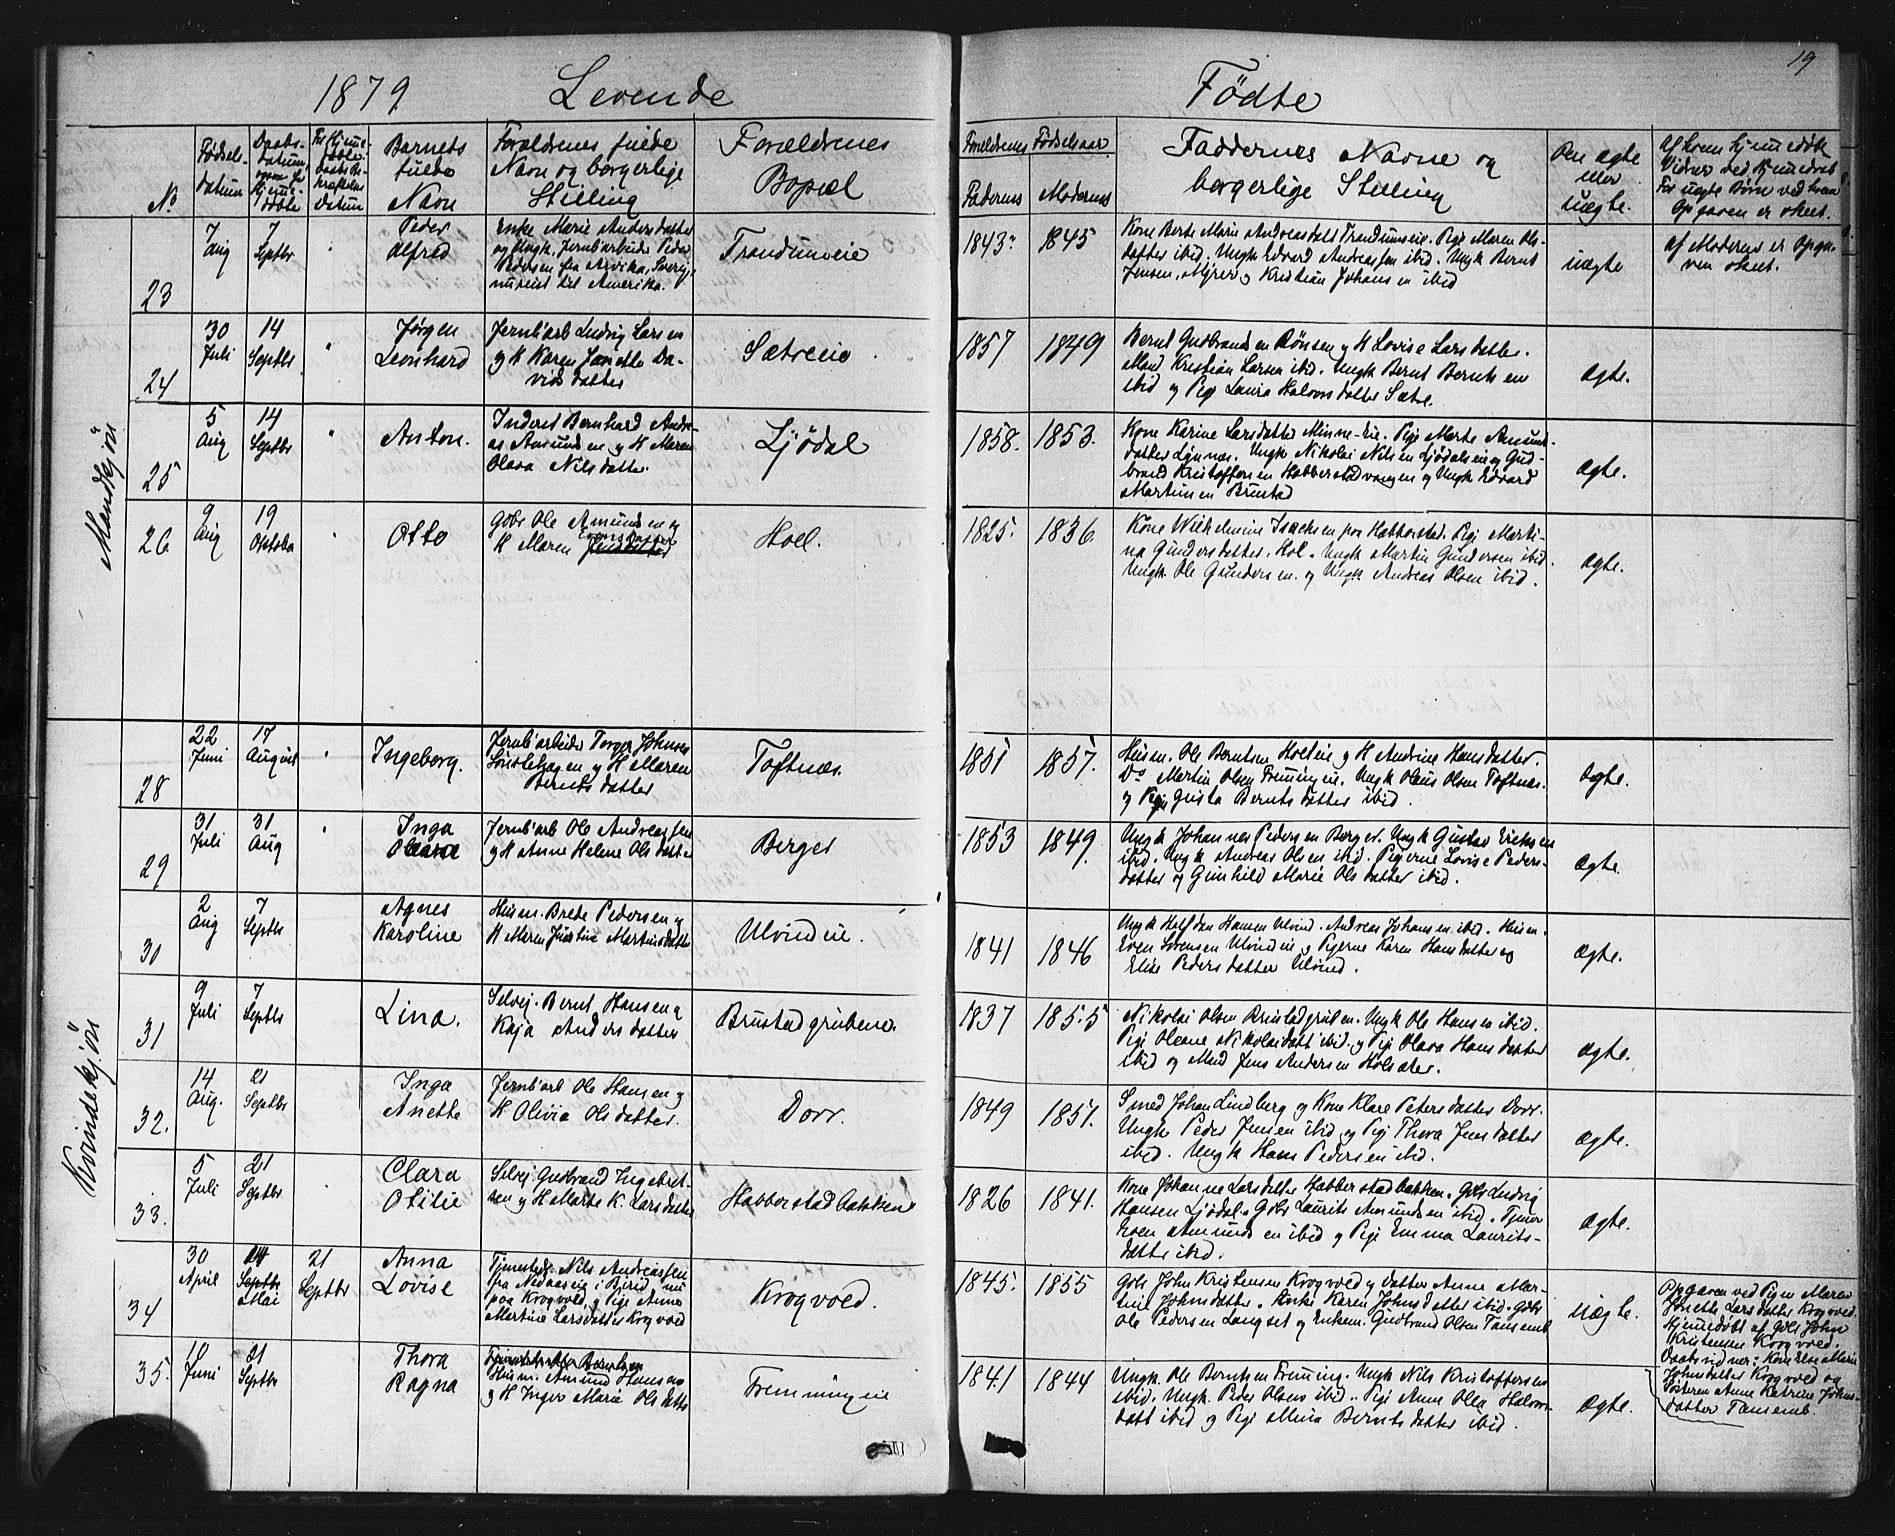 19
1879 Levende Fødte
No
Fødsels-
datum
Daabs-
datum
Barnets
fulde
Navn
Forældrenes fulde
Navn og borgerlige
Stilling
Forældrenes
Bopæl
Forældrenes Fødselsaar
Faderens Moderens
Faddernes Navne og
borgerlige Stilling
Om ægte
eller
uægte.
Af hvem hjemmedøbt
Vidner ved Hjemmedaab
For uægte Børn ved hvem
Opgaven er skeet.
Mandkjøn
23
7
Aug
7
Septbr
Peder
Alfred
Enke Marie Andersdatter
og Ungk. Jernb'arbeider Peder
Pedersen fra Arvika, Sverig,
reist til Amerika.
Trandumeie
1843. 1845
Kone Berte Marie Andreasdatt Trandumseie. Pige Maren Ols-
datter ibid. Ungk Edvard Andreassen ibid. Ungk Bernt
Jensen, Myrer og Kristian Johansen ibid
uægte
Af Moderen er Opga-
ven skeet.
24
30
Juli
14
Septbr
Jørgen
Leonhard
Jernb'arb Ludvig Larsen
og H Karen Janette Da-
vidsdatter
Sætreeie
1857 1849
Bernt Gudbrandsen Rønsen og H Lovise Larsdatter.
Mand Kristian Larsen ibid. Ungk Bernt Berntsen
ibid og Pige Laura Halvorsdatter Sætre.
ægte.
25
5
Aug
14
Septbr
Anton.
Inderst Bernhard Andre-
as Amundsen og H Maren
Olava Nilsdatter.
Ljødal
1858. 1853.
Kone Karine Larsdatter Minne-Eie. Pige Marte Amunds-
datter Lynnes. Ungk Nikolai Nilsen Ljødalseie og Gud-
brand Kristoffersen Habberstadvangen og Ungk Edvard
Martinsen Brustad
ægte.
26
9
Aug
19
Octobr
Otto
Gbr Ole Amundsen og
H Maren Jensdatter
Hoel.
1825. 1836.
Kone Wilhelmine Isachsen for Habberstad. Pige Marti-
na Gundersdatter, Hol. Ungk Martin Gundersen ibid.
Ungk Ole Gundersen og Ungk Andreas Olsen ibid.
ægte.
Kvindekjøn
28
22
Juni
17
August
Ingeborg.
Jernb'arbeider Torger Johnsen
og H Maren
Berntsdatter
Toftnæs.
1851 1857.
Husm. Ole Berntsen Holseie og H Andrine Hansdatter.
Do Martin Olsen Fremmingeie. Ungk Olaus Olsen Toftnæs.
og Pige Gusta Berntsdatter ibid.
ægte.
29
31
Juli
31
Aug
Inga
Olava
Jernb'arb Ole Andreassen
og H Anne Helene Olsdatter
Berger
1853 1849.
Ungk Johannes Pedersen Berger. Ungk Gustav Eriksen
ibid. Ungk Andreas Olsen ibid. Pigerne Lovise Peders-
datter og Gunhild Marie Olsdatter ibid.
ægte.
30
2
Aug
7
Septbr
Agnes
Karoline
Husm. Brede Pedersen og
H Maren Justine Martinsdatter
Ulvindeie.
1841 1846
Ungk Halfdan Hansen Ulvind. Andreas Johansen ibid. Husm.
Even Sørensen Ulvindeie og Pigerne Karen Hansdatter og
Elise Pedersdatter Ulvind.
ægte.
31
9
Juli
7
Septbr
Lina.
Selvej. Bernt Hansen og
Kaja Andersdatter
Brustadgrubene.
1837 1855
Nikolai Olsen Brustadgruben. Ungk Ole Hansen ibid.
Pige Oleane Nikolaidatt ibid. og Pige Olava Hansdatter
ibid og Mand Jens Andersen Holsæter.
ægte.
32.
14
Aug.
21
Septbr
Inga
Anette
Jernb'arb Ole Hansen og
H Olivia Olsdatter.
Dorr.
1849 1857.
Smed Johan Lindberg og Kone Klare Petersdatter Dorr.
Ungk Peder Jensen ibid og Pige Thora Jensdatter
ibid. Ungk Hans Pedersen ibid.
ægte.
33.
5
Juli
21
Septbr
Clara
Otilie
Selvej. Gudbrand Ingebret-
sen og H Marte K. Larsdatter
Habberstadbakken
1826 1841.
Kone Johanne Larsdatter Habberstadbakken. Gbs Ludvig
Hansen Ljødal. Gbs Laurits Amundsen ibid. Tjener
Even Amundsen ibid og Pige Emma Laurits-
datter ibid.
ægte.
34
30
April
Septbr
Mai
21
Septbr
Anna
Lovise
Tjenestedr. Nils Andreassen
fra Nedaaseie i Birid nu
paa Krogvold, og Pige Anne
Martine Larsdatter Krogvold
Krogvold.
1845. 1855
Gbs John Kristensen Krogvold og datter Anne Mar-
tine Johnsdatter. Enke Karen Johnsdatter ibid. Gbs
Ole Pedersen Langset og Enkem. Gudbrand Olsen Tansemb
uægte.
Opgaven ved Pigen Maren
Jonette Larsdatter Krogvold.
Hjemmedøbt af Gbs John
Kristensen Krogvold.
Daabsvidner: Kone Else Marie
Johnsdatter Krogvold og
Søsteren Anne Katrine Johns-
datter Tansemb.
35.
Juni
21
Septbr
Thora
Ragna
Husm. Amund Hansen
og H Inger Marie Olsdatter
Fremmingeie
1841 1844
Ungk. Ole Berntsen Fremming. Ungk Nils Kristoffersen
ibid. Ungk Peder Olsen ibid. Pige Anne Olea Halvors-
datt ibid og Pige Mina Berntsdatter ibid.
ægte.